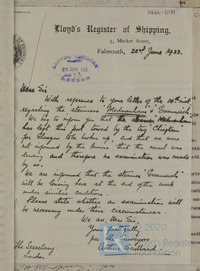 Lloyd's Register of Shipping,
3, Market Street,
Falmouth, 22nd June 1933.
Dear Sir
With reference to your letter of the 16th inst
regarding the steamers "Medmenham" & "Greenwich"
We beg to inform you that the Medmenham
has left this port towed by the tug
for Glasgow the broken up, and that we were
not informed by the Owners that the vessel was
leaving and therefore no examination was made
by us.
As the steamer "Greenwich"
will be leaving here at the end of the week
under similar conditions
Please state whether an examination will
be necessary under these circumstances
We are, Dear Sir,
Yours faithfully,
Surveyors
Arthur
The Secretary
London
2020
Foundation